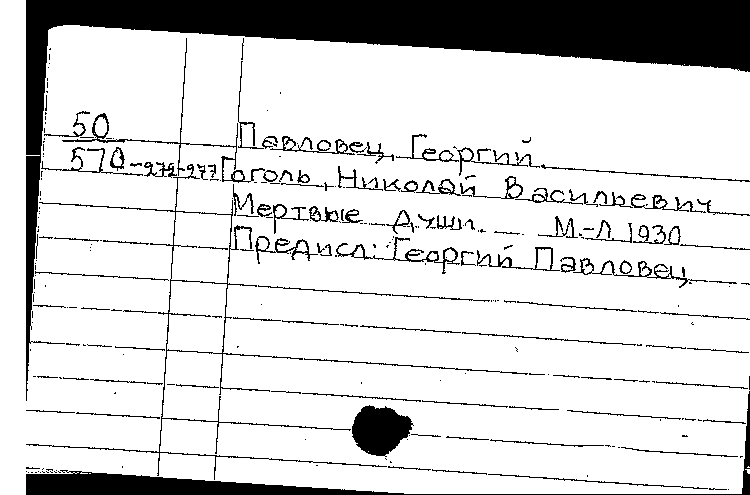 50
Павловец, Георгий.
570-272-277 Гоголь, Николай Васильевич
Мертвые души. — М.-Л. 1930
Предисл: Георгий Павловец.